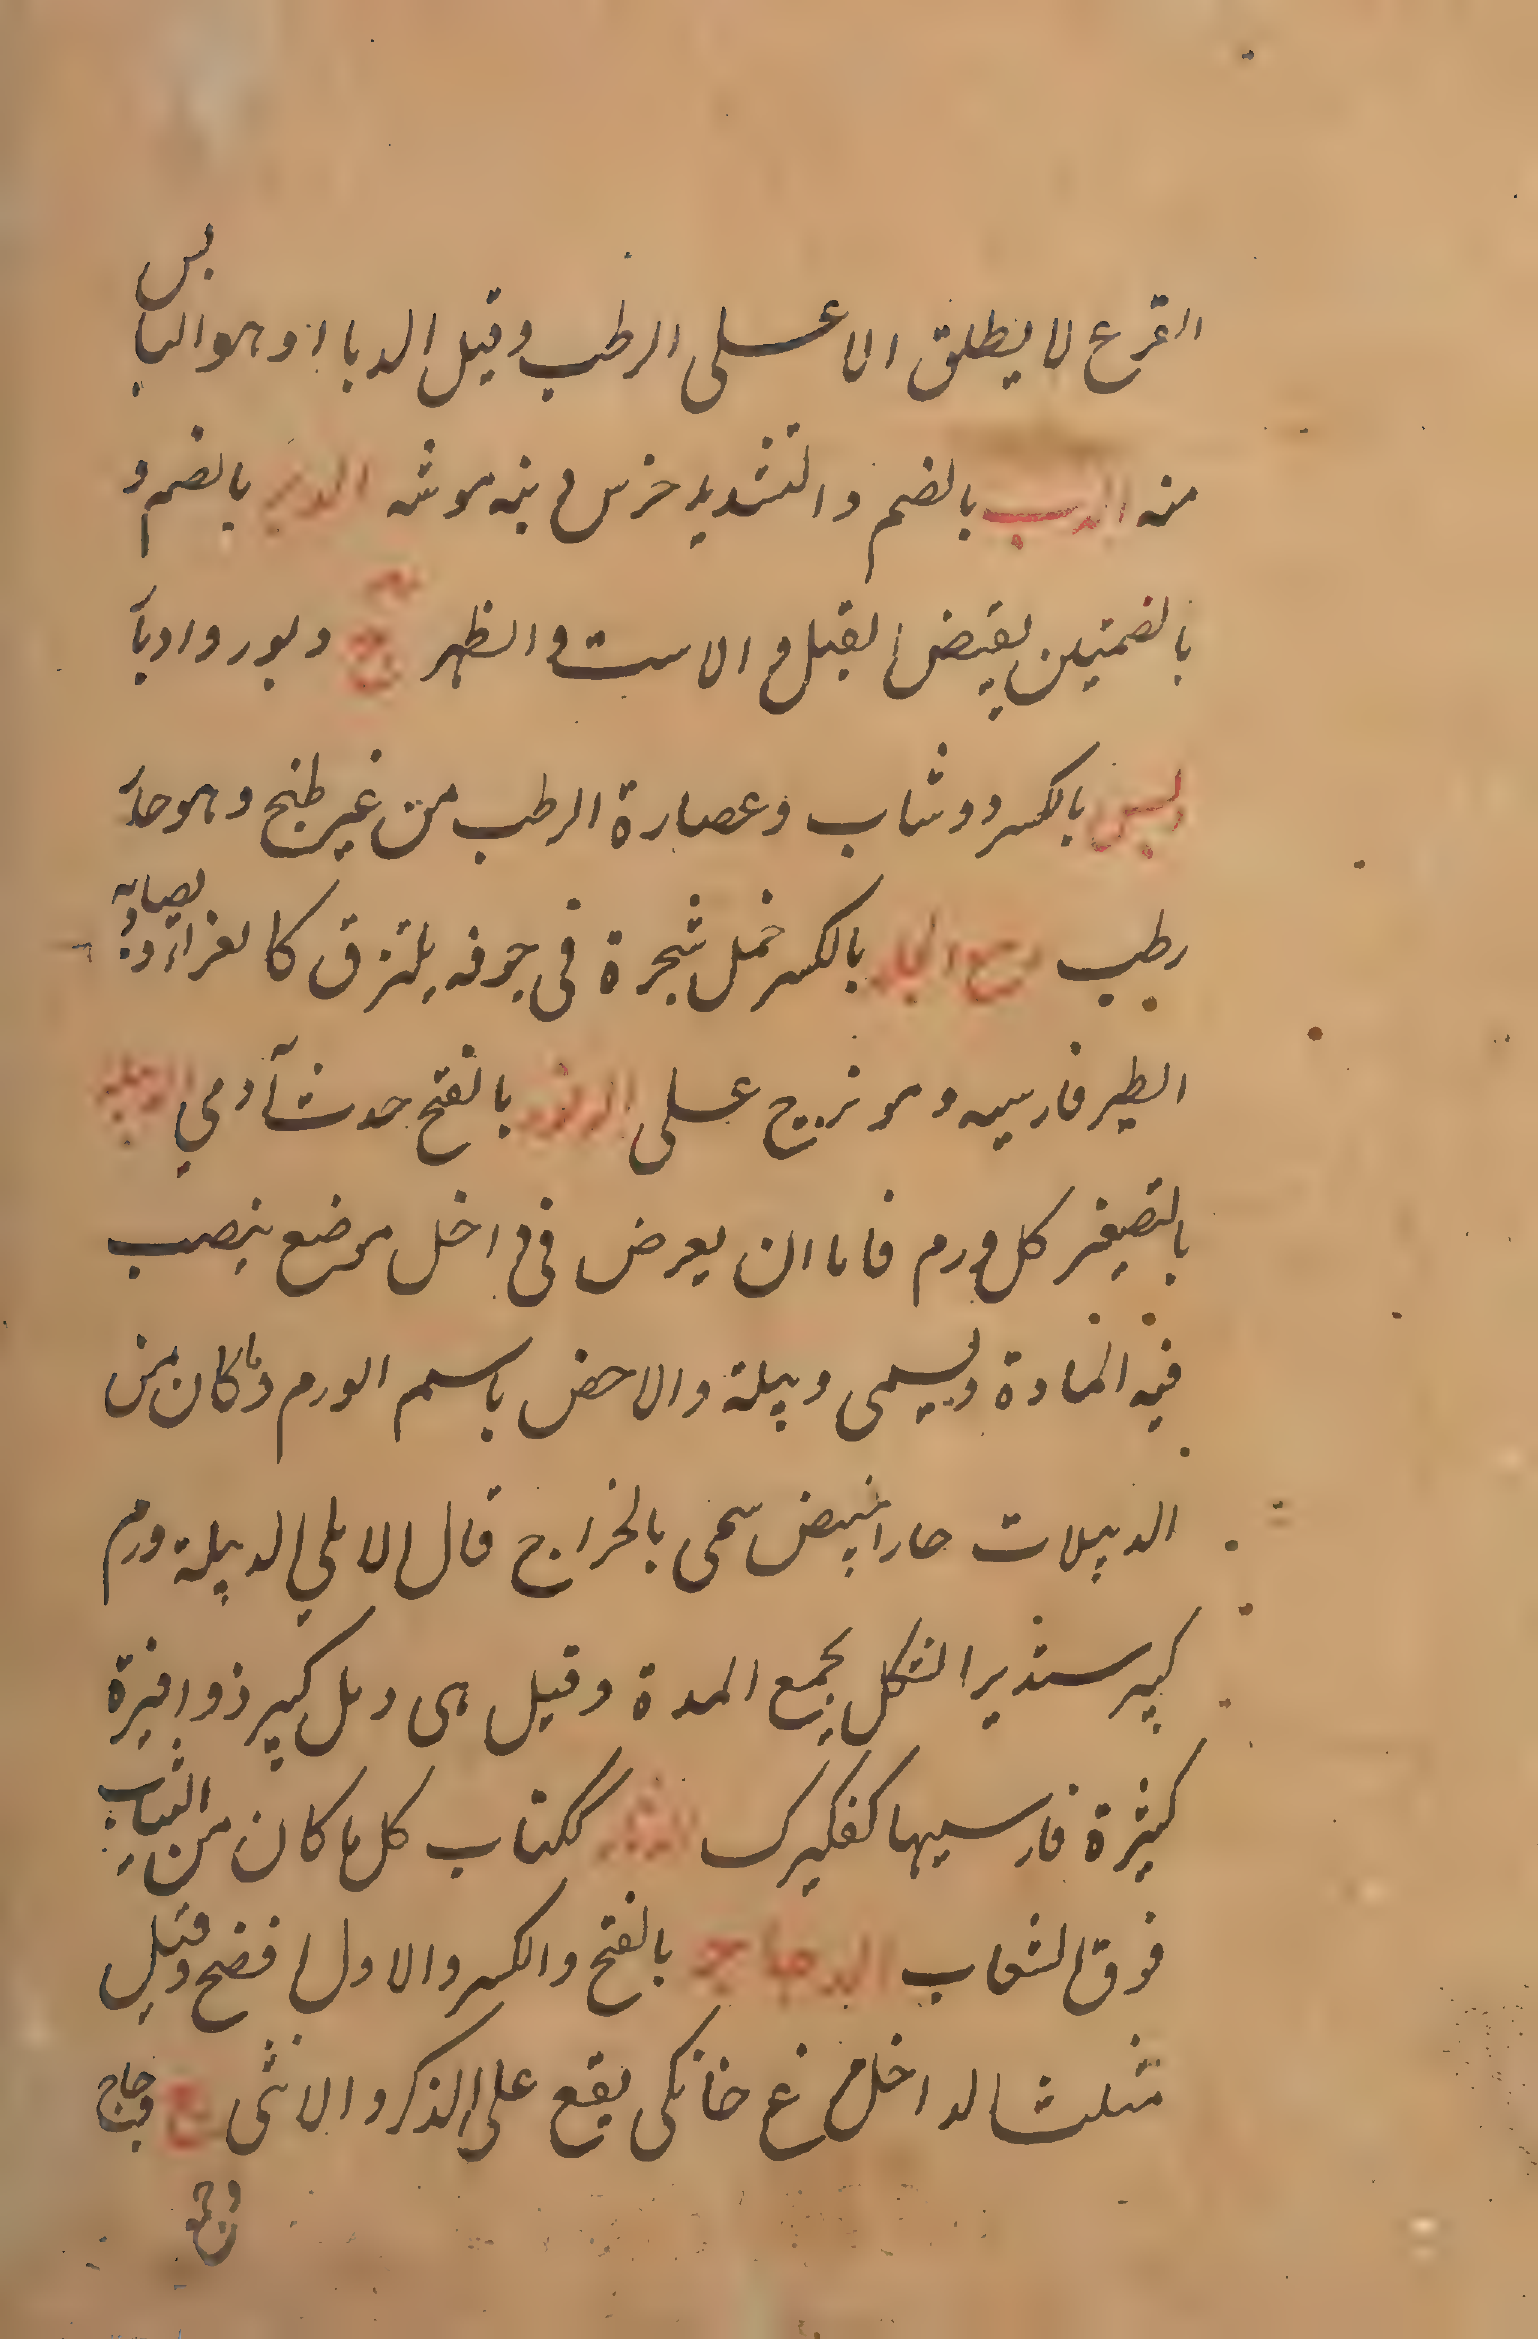 القرع لا يطلق الا على الرطب وقيل الدبا او هو اليابس
منه الدب بالضم والتشديد خرس و بنه موشه الدبر بالضم و
بالضمتين يقيض القبل و الاست و الظهر ج دبور و ادبآ
دبس بالكسر دوشاب وعصارة الرطب من غير طبخ و هو حار
رطب بالكسر خمل شجرة فى جوفه يلتزق كالغراء و يصاد به
الطير فارسيه مويزج على بالفتح حدث آدمي الدبيله
بالتصيغر كل ورم فاما ان يعرض فى داخل موضع ينصب
فيه المادة ويسمى دبيلة والا خص باسم الورم وما كان من
الدبيلات حارا سمى بالخراج قال الاملي الدبيلة ورم
كبير مستدير الشكل يجمع المدة وقيل هى دمل كبير ذو
كثيرة فارسيها كفكيرك الدثار ككتاب كل ما كان من الثياب
فوق الشعاب الدجاج بالفتح والكسر والاول افصح وقيل
مثلث الداخل مرغ خانكى يقع على الذكر والانثى ج دجاج